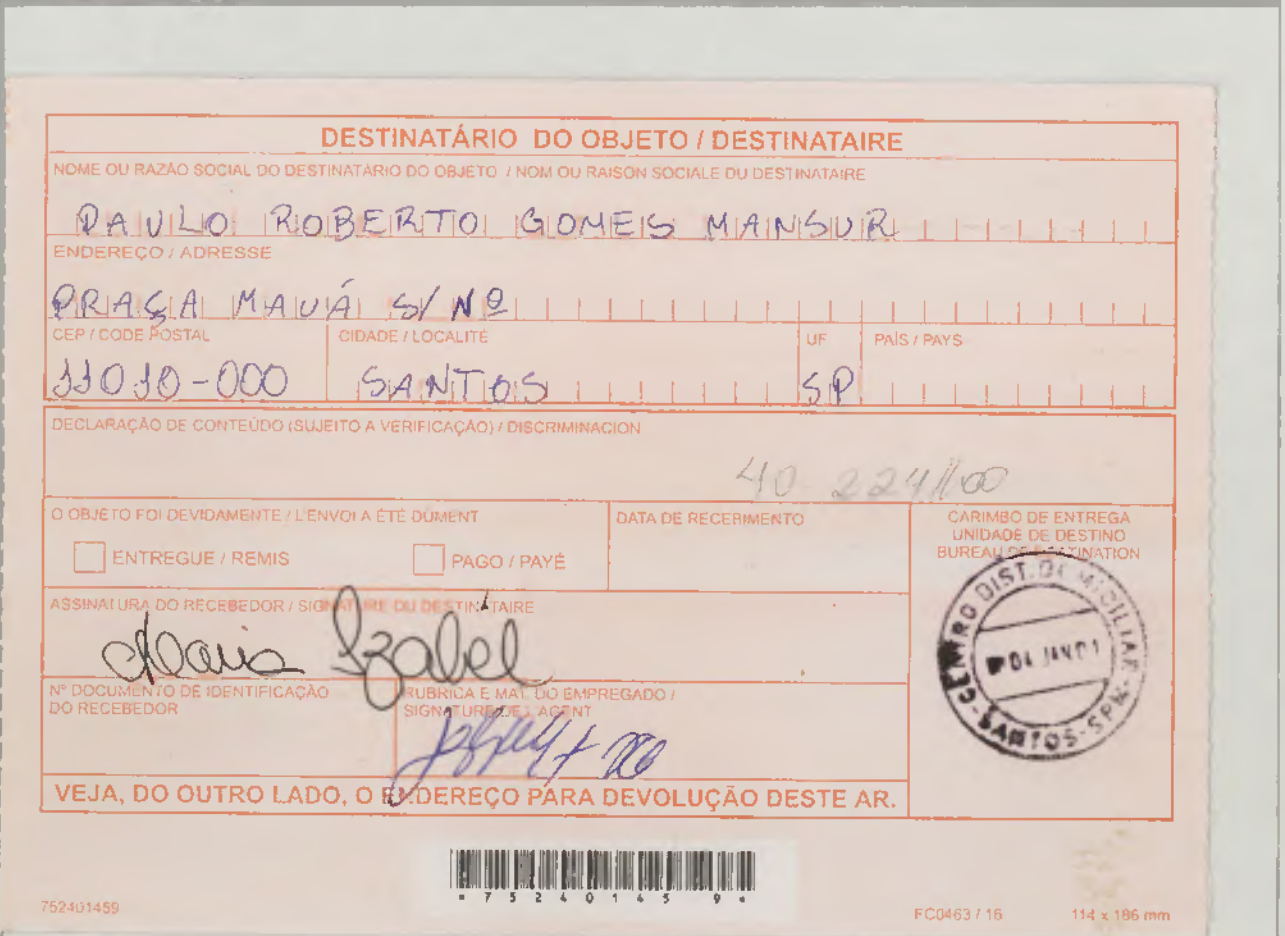 DESTINATÁRIO DO OBJETO / DESTINATAIRE
NOME OU RAZÃO SOCIAL DO DESTINATÁRIO DO OBJETO / NOM OU RAISON SOCIALE DU DESTINATAIRE
PAULO ROBERTO GOMES MANSUR
ENDEREÇO / ADRESSE
PRAÇA MAUÁ S/Nº
CEP / CODE POSTAL CIDADE / LOCALITÉ UF PAÍS / PAYS
11010-000 SANTOS SP
DECLARAÇÃO DE CONTEÚDO (SUJEITO A VERIFICAÇÃO) / DISCRIMINACION
40 224/00
O OBJETO FOI DEVIDAMENTE / L'ENVOI A ÉTÉ DÛMENT
ENTREGUE / REMIS PAGO / PAYÉ
DATA DE RECEBIMENTO
CARIMBO DE ENTREGA
UNIDADE DE DESTINO
BUREAU DE DESTINATION
ASSINATURA DO RECEBEDOR / SIGNATURE DU DESTINATAIRE
Maria Izabel
CENTRO DIST. DOMICILIAR
04 JAN 01
SANTOS-SPM
Nº DOCUMENTO DE IDENTIFICAÇÃO
DO RECEBEDOR
RUBRICA E MAT. DO EMPREGADO /
SIGNATURE DE L'AGENT
VEJA, DO OUTRO LADO, O ENDEREÇO PARA DEVOLUÇÃO DESTE AR.
752401459
752401459 FC0463 / 16 114 x 186 mm